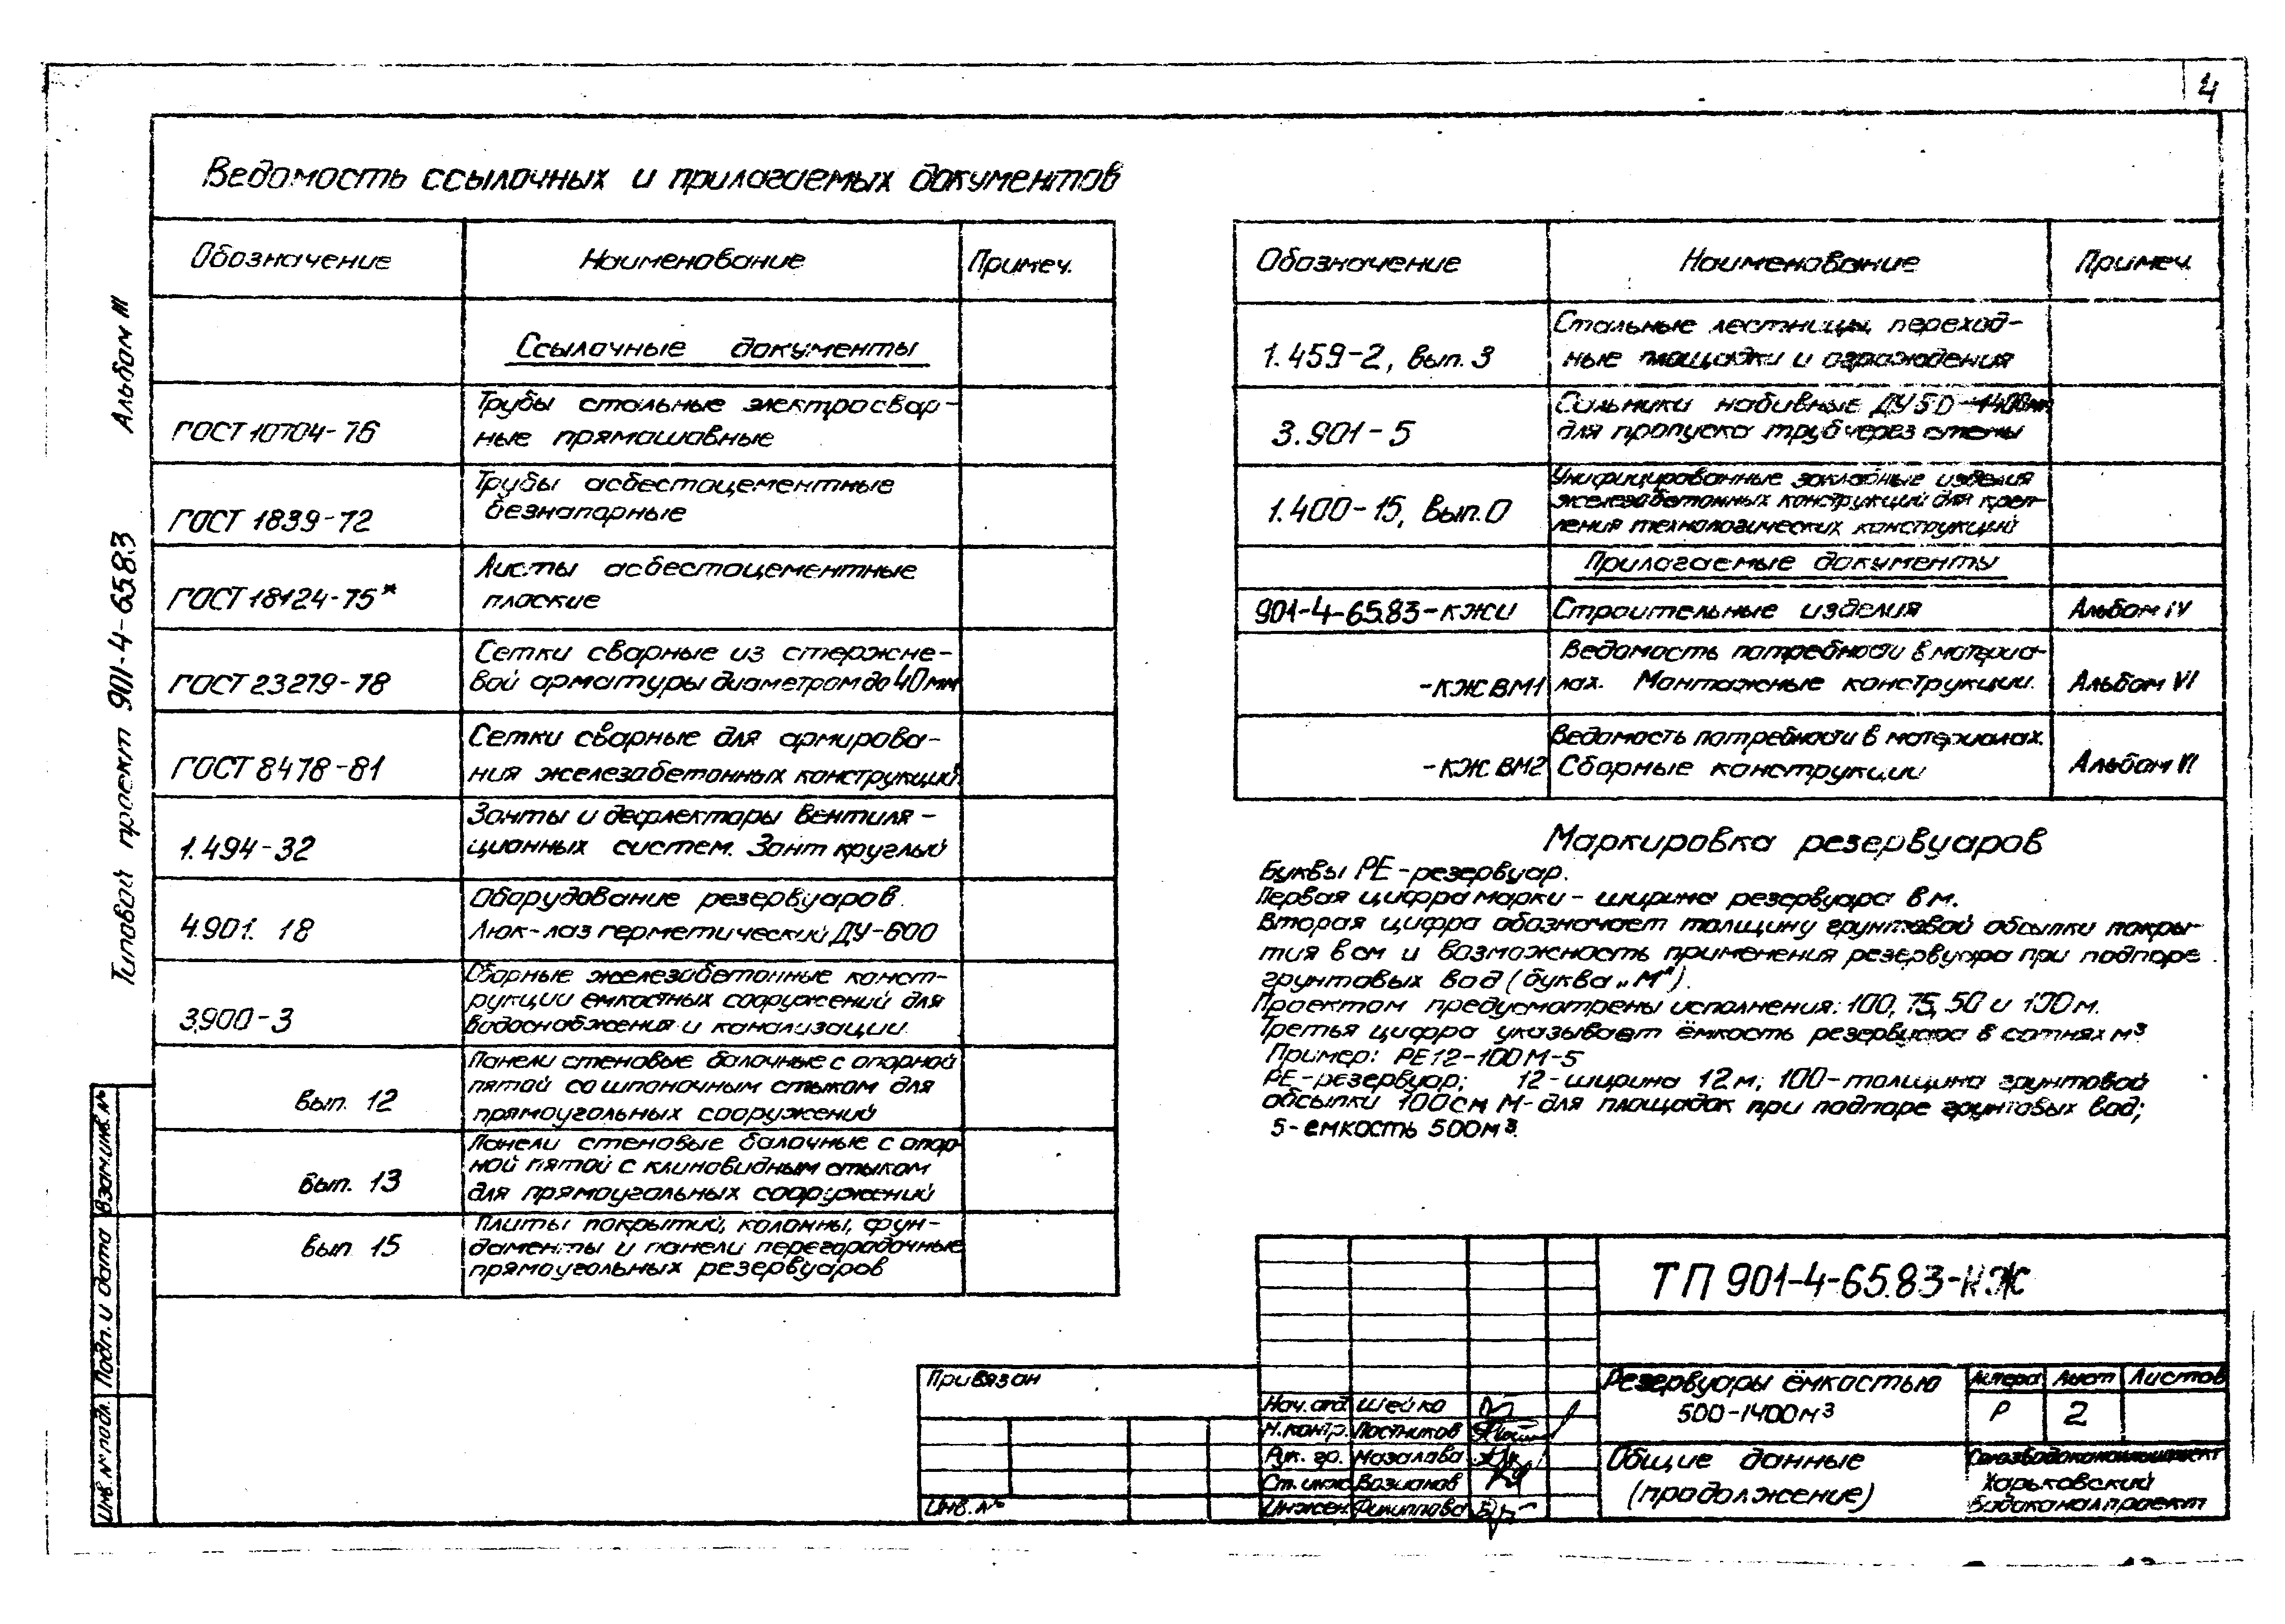 4
Ведомость ссылочных и прилагаемых документов
Обозначение Наименование Примеч.
Ссылочные документы
ГОСТ 10704-76 Трубы стальные электросвар-
ные прямошовные
ГОСТ 1839-72 Трубы асбестоцементные
безнапорные
ГОСТ 18124-75* Листы асбестоцементные
плоские
ГОСТ 23279-78 Сетки сварные из стержне-
вой арматуры диаметром до 40мм
ГОСТ 8478-81 Сетки сварные для армирова-
ния железобетонных конструкций
1.494-32 Зонты и дефлекторы вентиля-
ционных систем. Зонт круглый
4.901. 18 Оборудование резервуаров.
Люк-лаз герметический ДУ-600
3.900-3 Сборные железобетонные конст-
рукции емкостных сооружений для
водоснабжения и канализации.
Вып. 12 Панели стеновые балочные с опорной
пятой со шпоночным стыком для
прямоугольных сооружений
Вып. 13 Панели стеновые балочные с опор-
ной пятой с клиновидным стыком
для прямоугольных сооружений
Вып 15 Плиты покрытий, колонны, фун-
даменты и панели перегородочные
прямоугольных резервуаров
Обозначение Наименование Примеч.
1.459-2, Вып. 3 Стальные лестницы, переход-
ные площадки и ограждения
3.901-5 Сальники набивные ДУ50-1400мм
для пропуска труб через стены
1.400-15, Вып.0 Унифицированные закладные изделия
железобетонных конструкций для креп-
ления технологических конструкций
Прилагаемые документы
901-4-65.83-КЖИ Строительные изделия Альбом IV
-КЖ ВМ1 Ведомость потребности в материа-
лах. Монтажные конструкции. Альбом VI
-КЖ ВМ2 Ведомость потребности в материалах.
Сборные конструкции Альбом VI
Маркировка резервуаров
Буквы РЕ-резервуар.
Первая цифра марки - ширина резервуара в м.
Вторая цифра обозначает толщину грунтовой обсыпки покры-
тия в см и возможность применения резервуара при подпоре
грунтовых вод (буква „М").
Проектом предусмотрены исполнения: 100, 75, 50 и 100м.
Третья цифра указывает ёмкость резервуара в сотнях м³
Пример: РЕ12-100М-5
РЕ-резервуар; 12-ширина 12м; 100-толщина грунтовой
обсыпки 100см М-для площадок при подпоре грунтовых вод;
5-емкость 500м³.
ТП 901-4-65.83-КЖ
Резервуары ёмкостью
500-1400м³
Литера Лист Листов
Р 2
Общие данные
(продолжение)
Союзводоканалпроект
Харьковский
Водоканалпроект
Привязан
Инв. №
Нач. отд Шейко
Н.контр. Постников
Рук. гр. Мозалова
Ст. инж Возианов
Инжен. Филиппова
Типовой проект 901-4-65.83 Альбом III
Инв. № подл. Подп. и дата Взам.инв. №